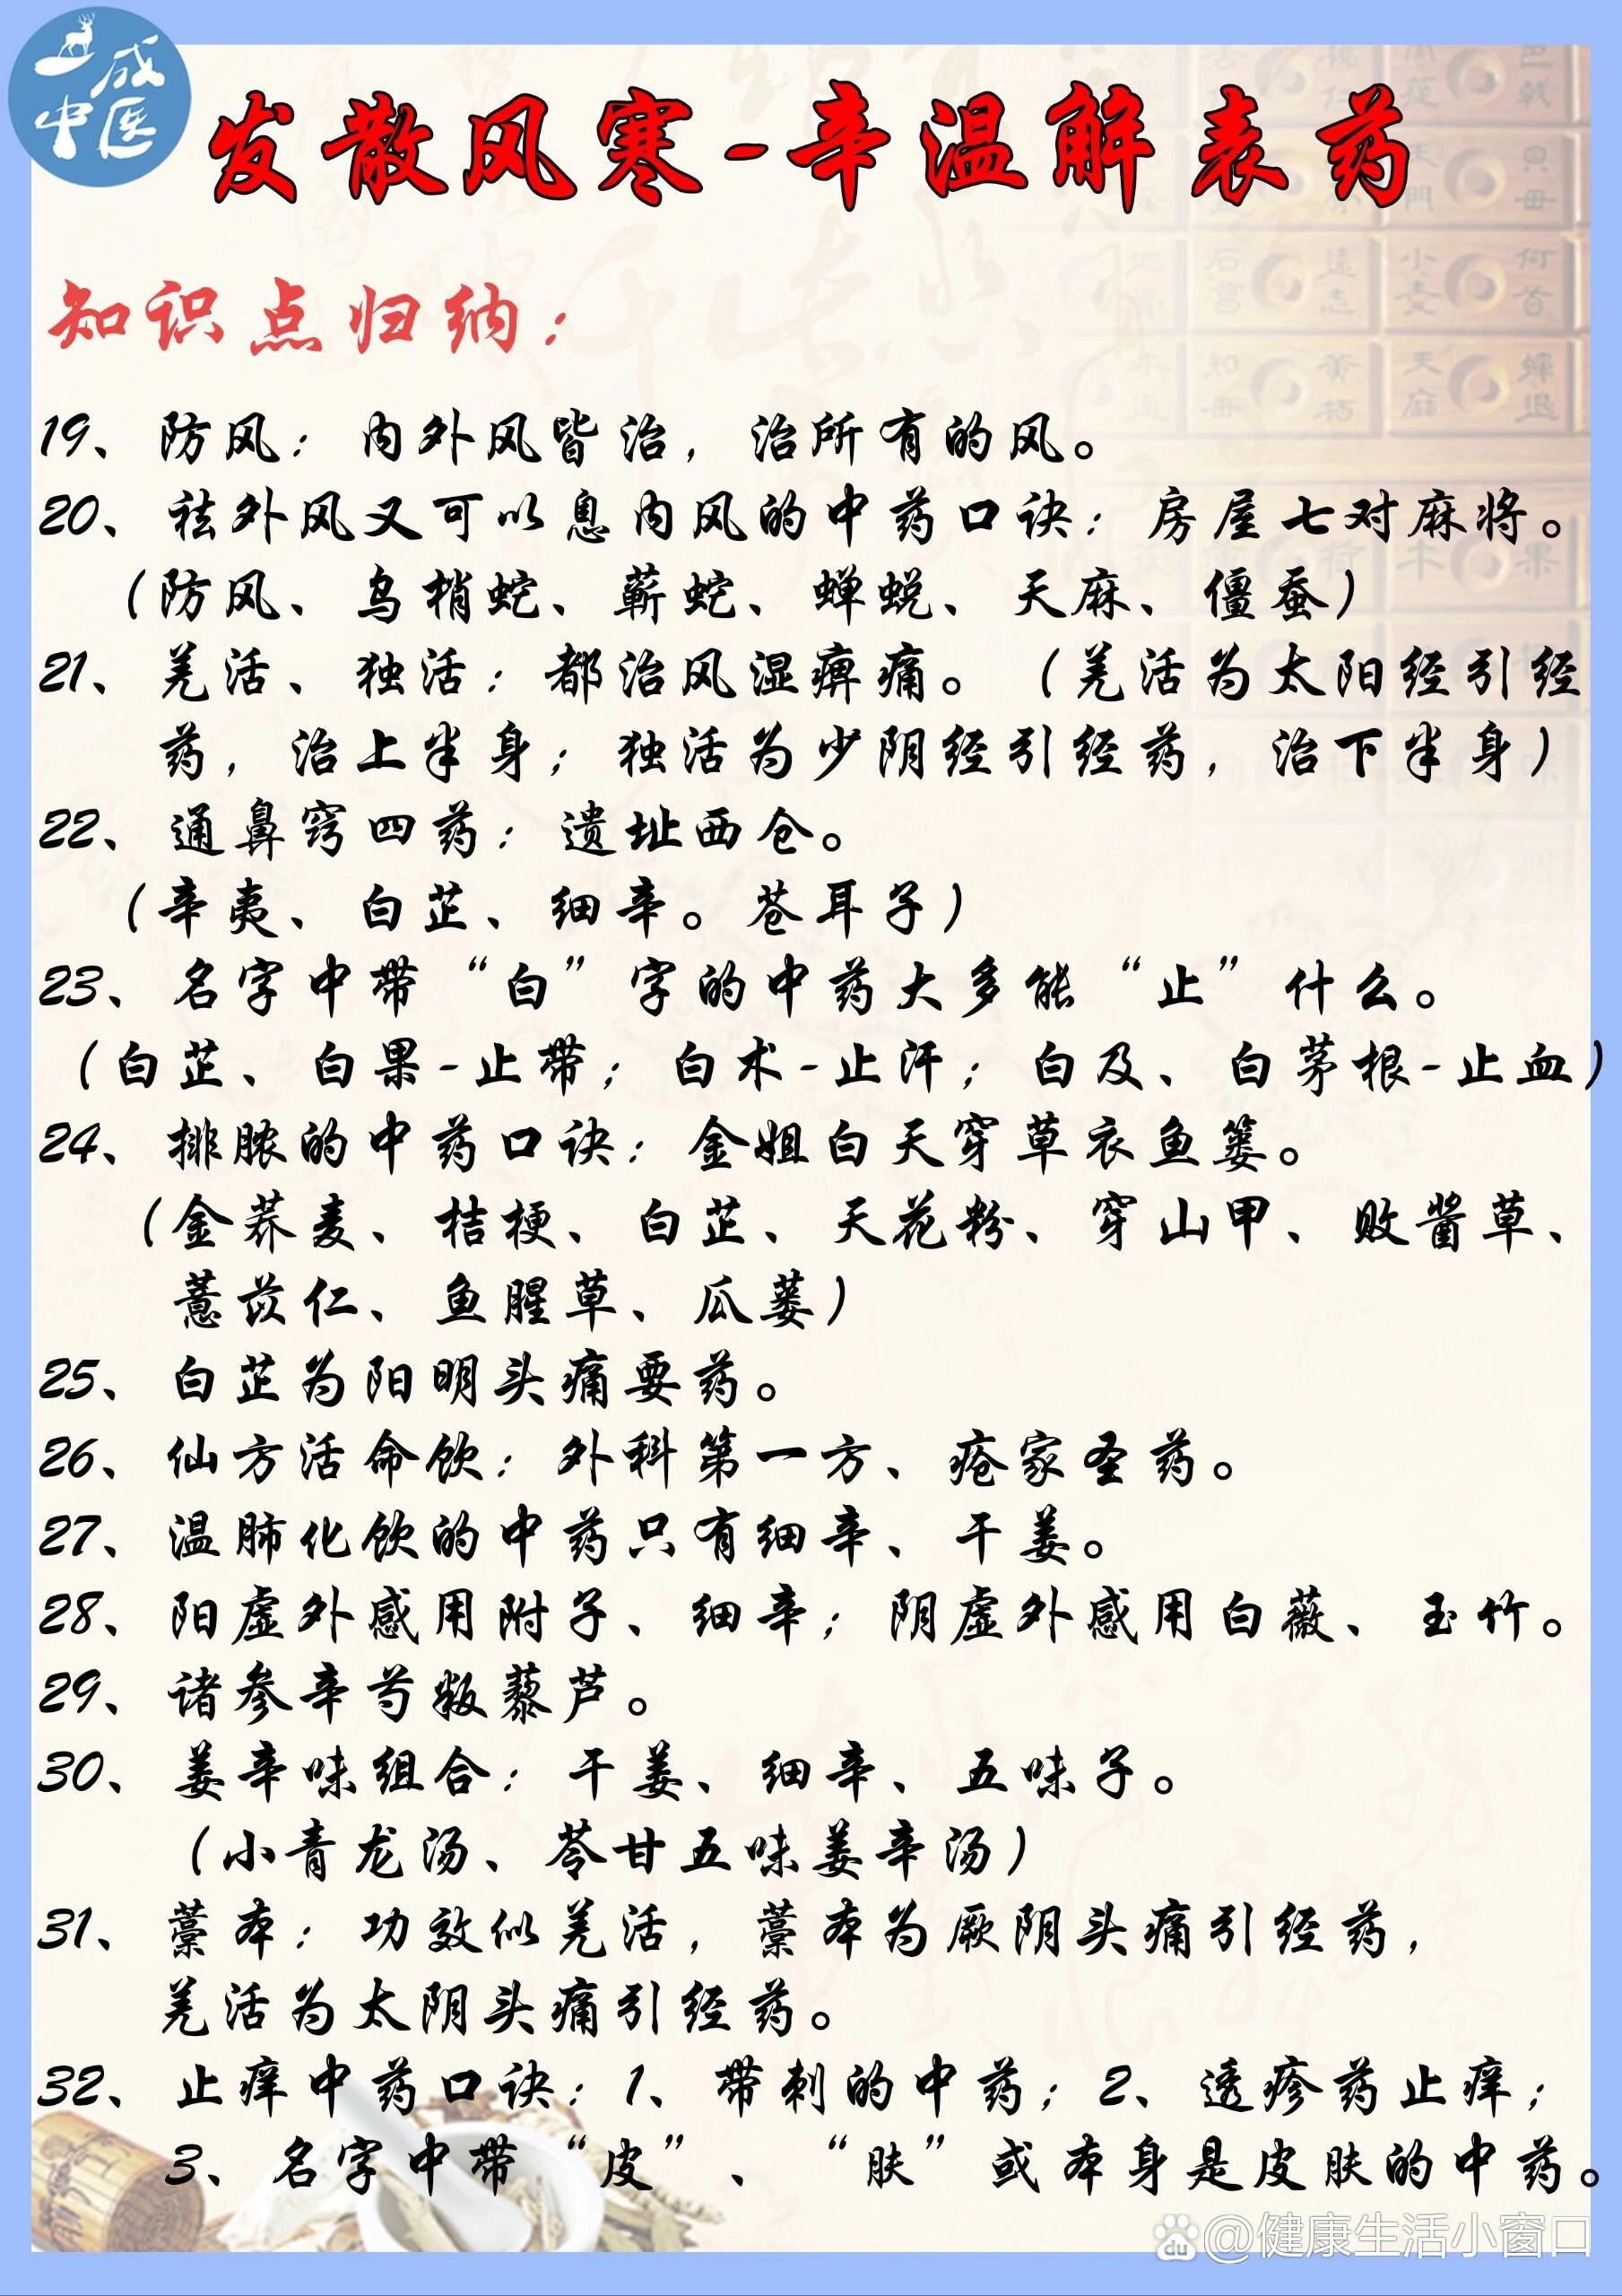 一成
中医
发散风寒-辛温解表药
知识点归纳：
19、防风：内外风皆治，治所有的风。
20、祛外风又可以息内风的中药口诀：房屋七对麻将。
（防风、乌梢蛇、蕲蛇、蝉蜕、天麻、僵蚕）
21、羌活、独活：都治风湿痹痛。（羌活为太阳经引经
药，治上半身；独活为少阴经引经药，治下半身）
22、通鼻窍四药：遗址西仓。
（辛夷、白芷、细辛。苍耳子）
23、名字中带“白”字的中药大多能“止”什么。
（白芷、白果-止带；白术-止汗；白及、白茅根-止血）
24、排脓的中药口诀：金姐白天穿草衣鱼篓。
（金荞麦、桔梗、白芷、天花粉、穿山甲、败酱草、
薏苡仁、鱼腥草、瓜蒌）
25、白芷为阳明头痛要药。
26、仙方活命饮：外科第一方、疮家圣药。
27、温肺化饮的中药只有细辛、干姜。
28、阳虚外感用附子、细辛；阴虚外感用白薇、玉竹。
29、诸参辛芍叛藜芦。
30、姜辛味组合：干姜、细辛、五味子。
（小青龙汤、苓甘五味姜辛汤）
31、藁本：功效似羌活，藁本为厥阴头痛引经药，
羌活为太阴头痛引经药。
32、止痒中药口诀：1、带刺的中药；2、透疹药止痒；
3、名字中带“皮”、“肤”或本身是皮肤的中药。
du @健康生活小窗口